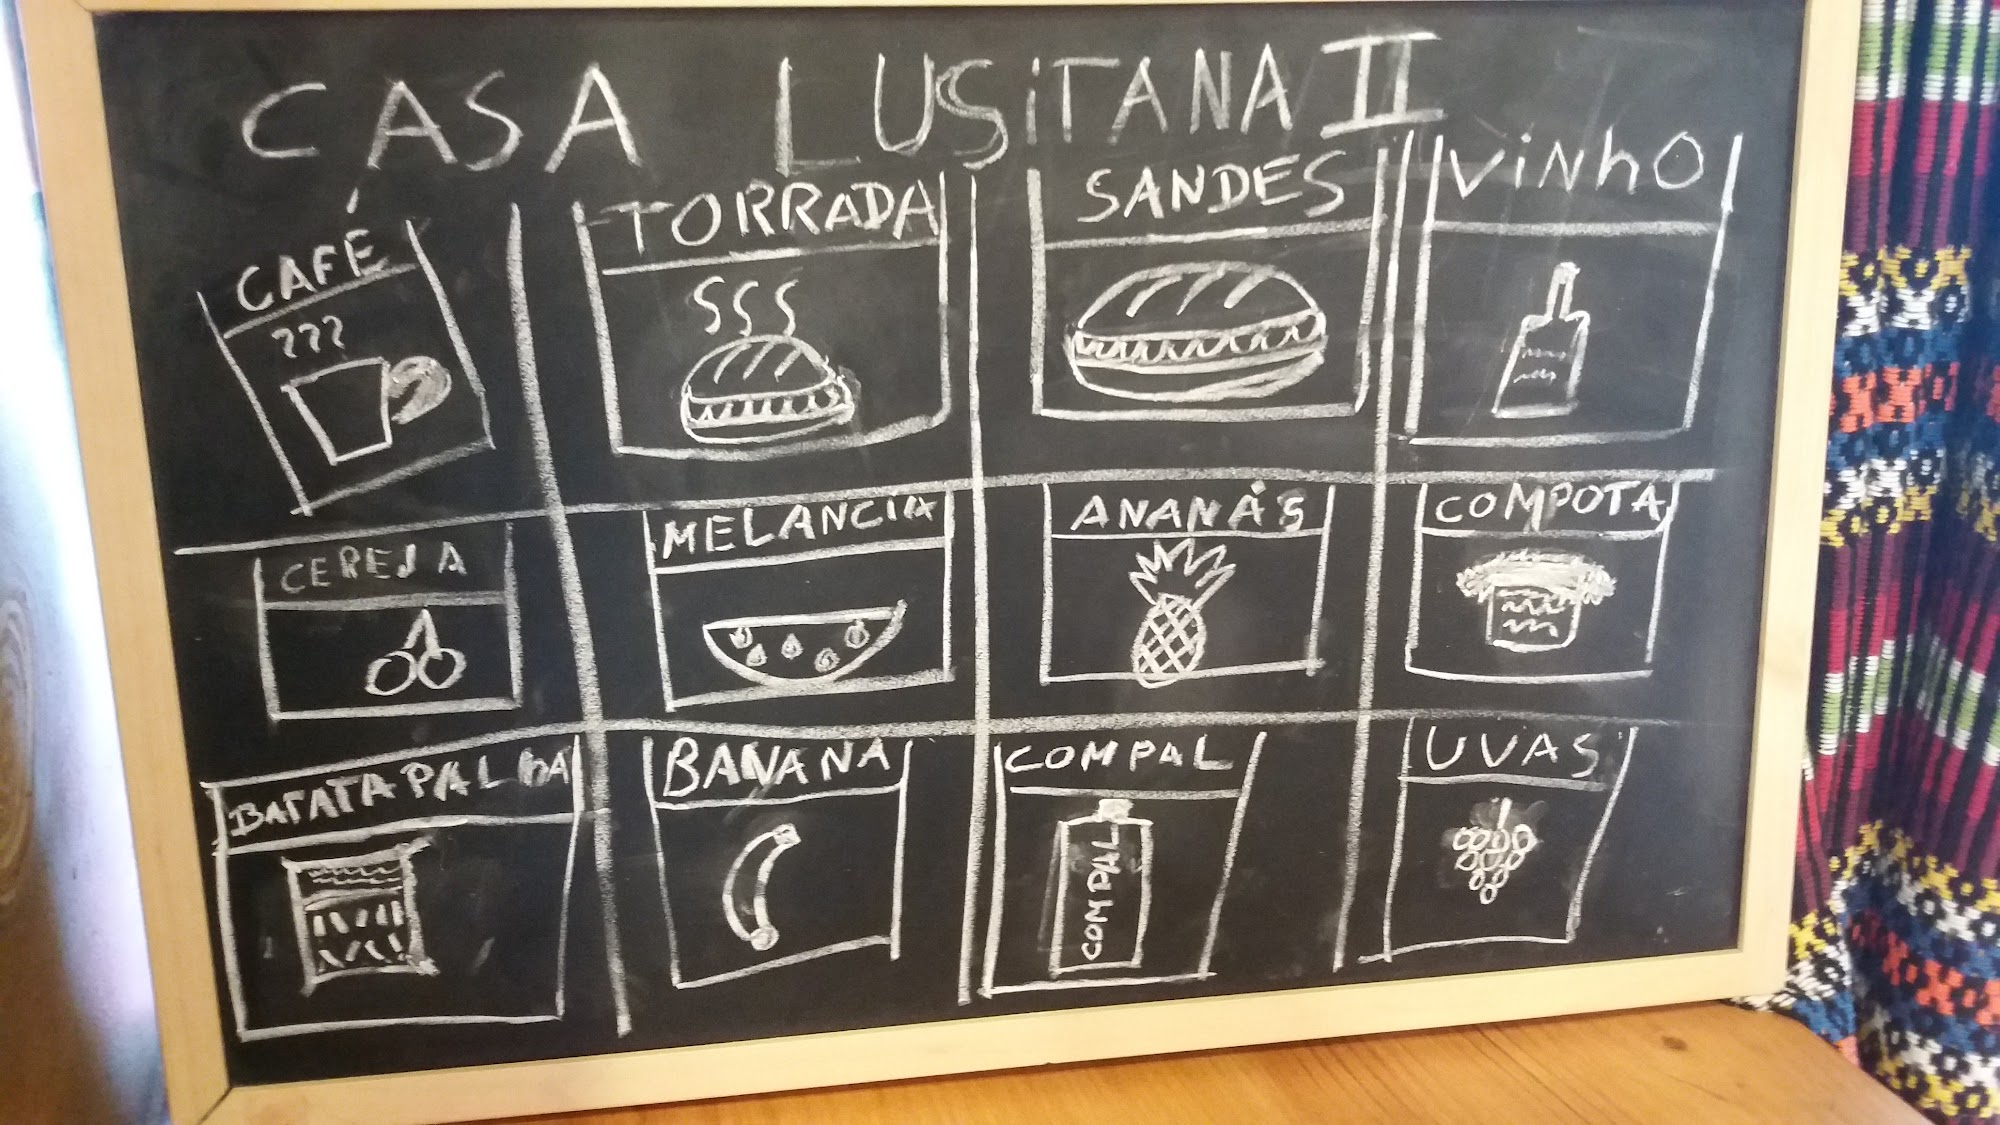 CASA LUSiTANA II
CAFÉ
TORRADA
SANDES
ViNhO
CEREJA
MELANCiA
ANANÁS
COMPOTA
BATATA PALhA
BANANA
COMPAL
COMPAL
UVAS